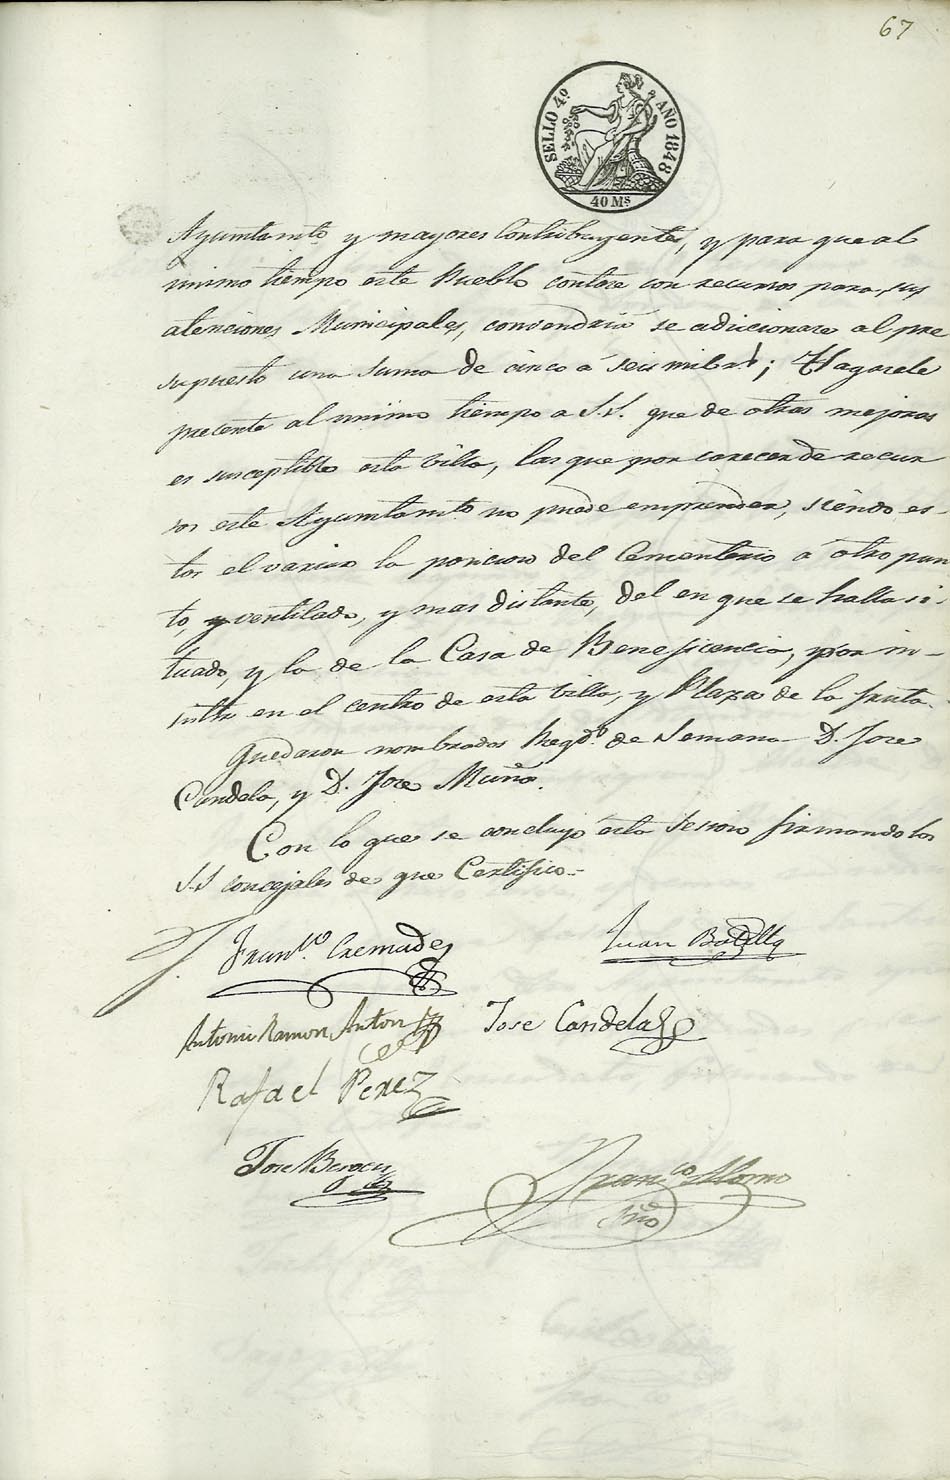 67
SELLO 4º AÑO 1848
40 Ms
Ayuntamto. y mayores Contribuyentes, y para que al
mismo tiempo este Pueblo contase con recursos para sus
atenciones Municipales, convendria se adicionase al pre
supuesto una suma de cinco á seis mil rs.; Hagasele
presente al mismo tiempo a S.S. que de otras mejoras
es susceptible esta Villa, las que por carecer de recur
sos este Ayuntamto. no puede emprender, siendo es-
tos el variar la posicion del Cementerio a otro pun
to, y ventilado, y mas distante, del en que se halla si-
tuado, y la de la Casa de Beneficencia, por in-
sulsa en el centro de esta Villa, y Plaza de la fruta.
Quedaron nombrados Regds. de Semana D. Jose
Candela, y D. Jose
Con lo que se concluyó esta Sesion firmando los
S.S concejales de que Certifico.-
Franco. Cremades
Juan Botella
Antonio Ramon Anton
Jose Candela
Rafael Perez
Jose
Franco. Alonso
Srio